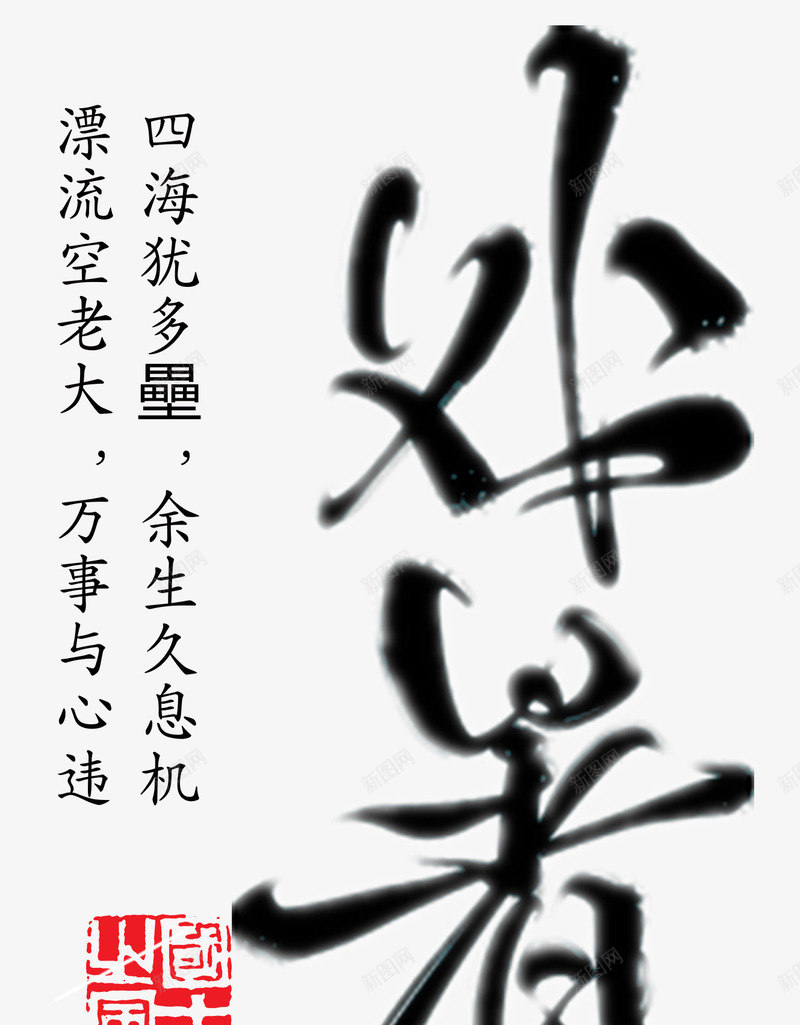 处暑
四海犹多壘，余生久息机
漂流空老大，万事与心违
新图网